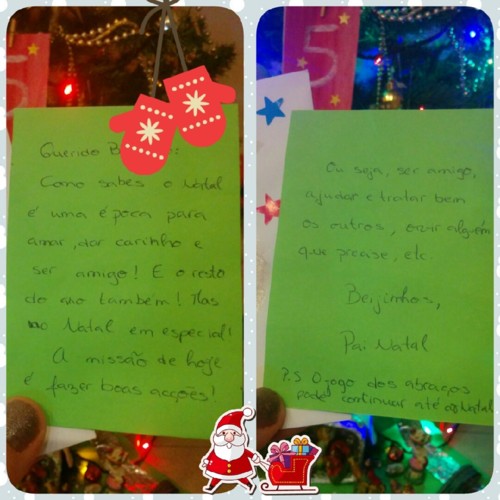 Querido
Como sabes o Natal
é uma época para
amar, dar carinho e
ser amigo! E o resto
do ano também! Mas
no Natal em especial!
A missão de hoje
é fazer boas acções!
5
Ou seja, ser amigo,
ajudar e tratar bem
os outros, ouvir alguém
que precise, etc.
Beijinhos,
Pai Natal
P.S O jogo dos abraços
pode continuar até ao Natal